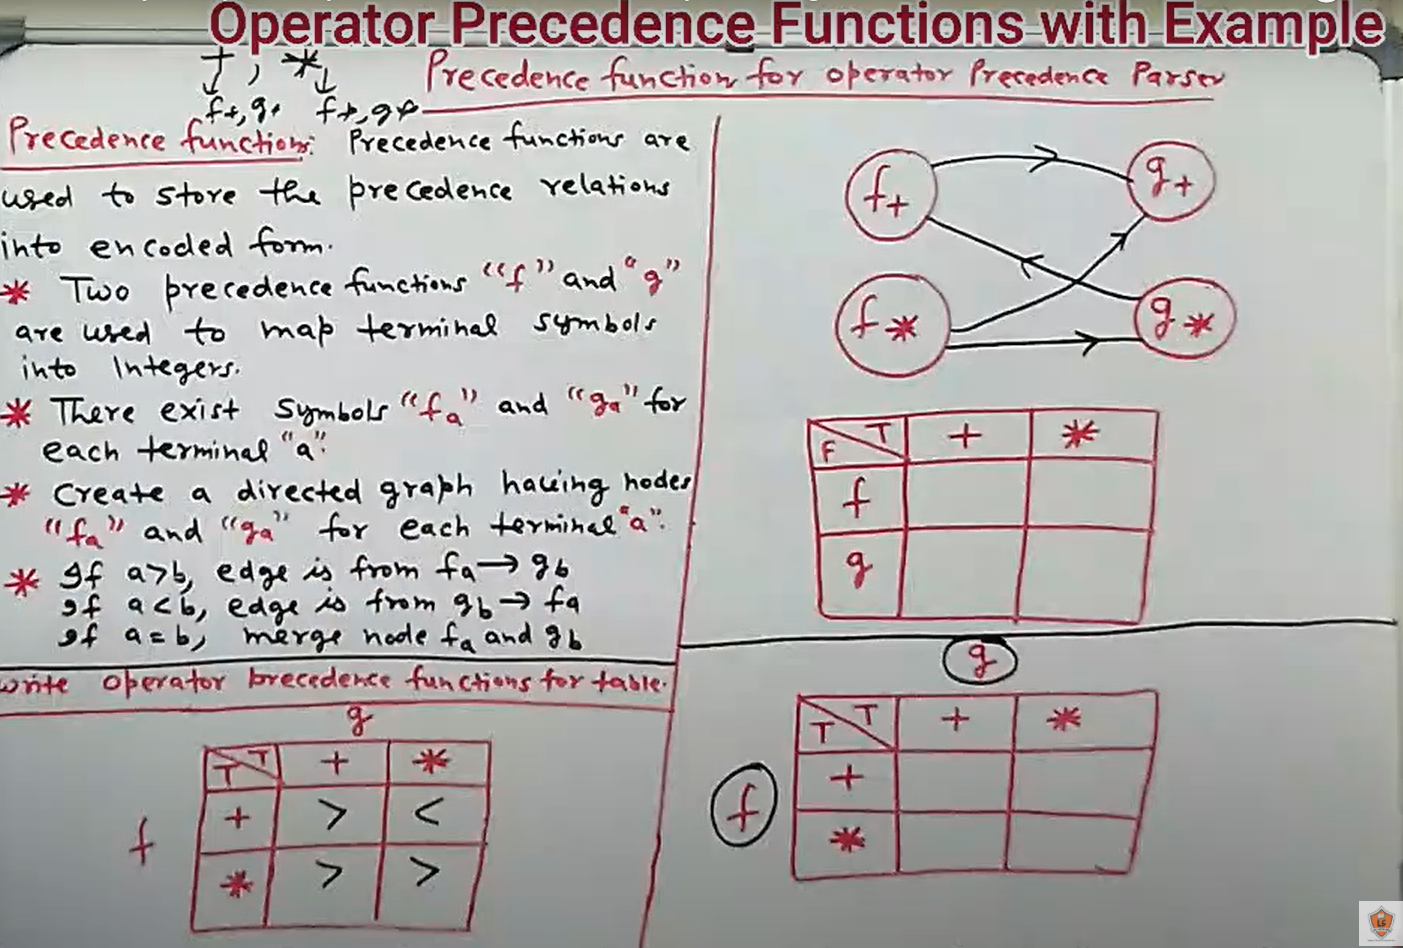 Operator Precedence Functions with Example
+ , *
f+, g+ f*, g*
Precedence function for operator Precedence Parser
Precedence function: Precedence functions are
used to store the precedence relations
into encoded form.
* Two precedence functions "f" and "g"
are used to map terminal symbols
into Integers.
* There exist symbols "fa" and "ga" for
each terminal "a".
* Create a directed graph having nodes
"fa" and "ga" for each terminal "a".
* If a>b, edge is from fa → gb
If a<b, edge is from gb → fa
If a=b, merge node fa and gb
write operator precedence functions for table.
g
T T + *
f
+ > <
* > >
f+ g+
f* g*
F T + *
f
g
g
T T + *
f
+
*
LS